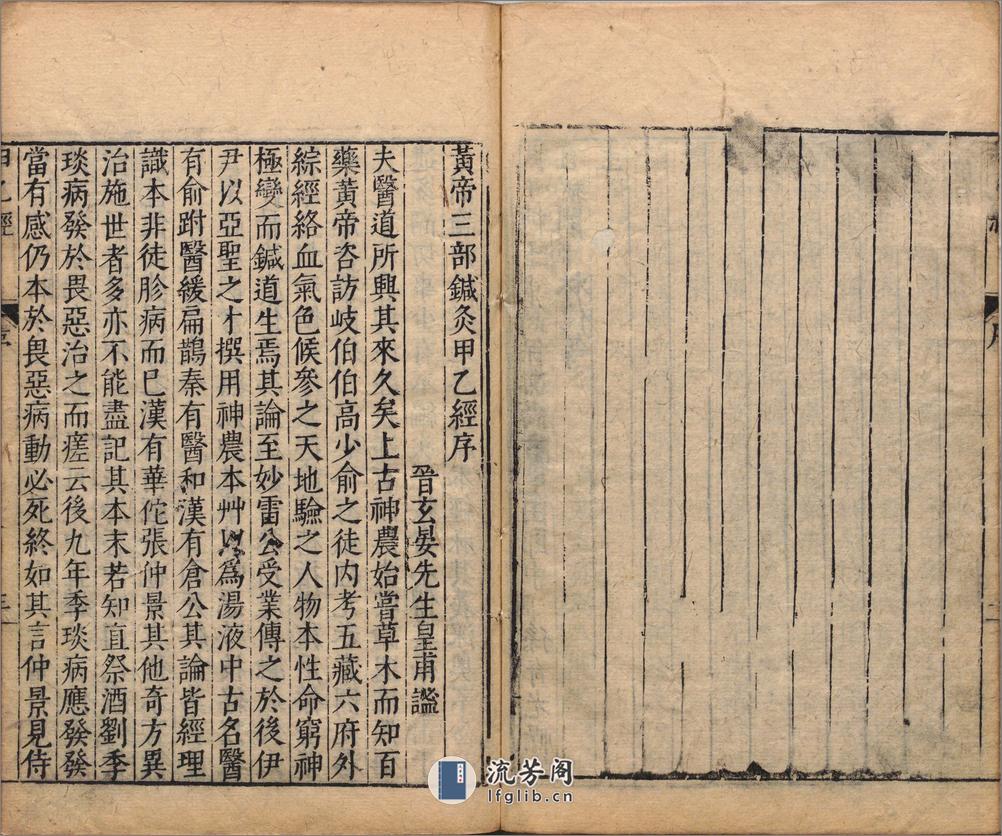 序
黃帝三部鍼灸甲乙經序
晉玄晏先生皇甫謐
夫醫道所興其來久矣上古神農始嘗草木而知百
藥黃帝咨訪岐伯伯高少俞之徒内考五藏六府外
綜經絡血氣色候參之天地驗之人物本性命窮神
極變而鍼道生焉其論至妙雷公受業傳之於後伊
尹以亞聖之才撰用神農本艸以爲湯液中古名醫
有俞跗醫緩扁鵲秦有醫和漢有倉公其論皆經理
識本非徒胗病而已漢有華佗張仲景其他奇方異
治施世者多亦不能盡記其本末若知直祭酒劉季
琰病發於畏惡治之而瘥云後九年季琰病應發發
當有感仍本於畏惡病動必死終如其言仲景見侍
甲乙經
序
流芳阁
lfglib.cn